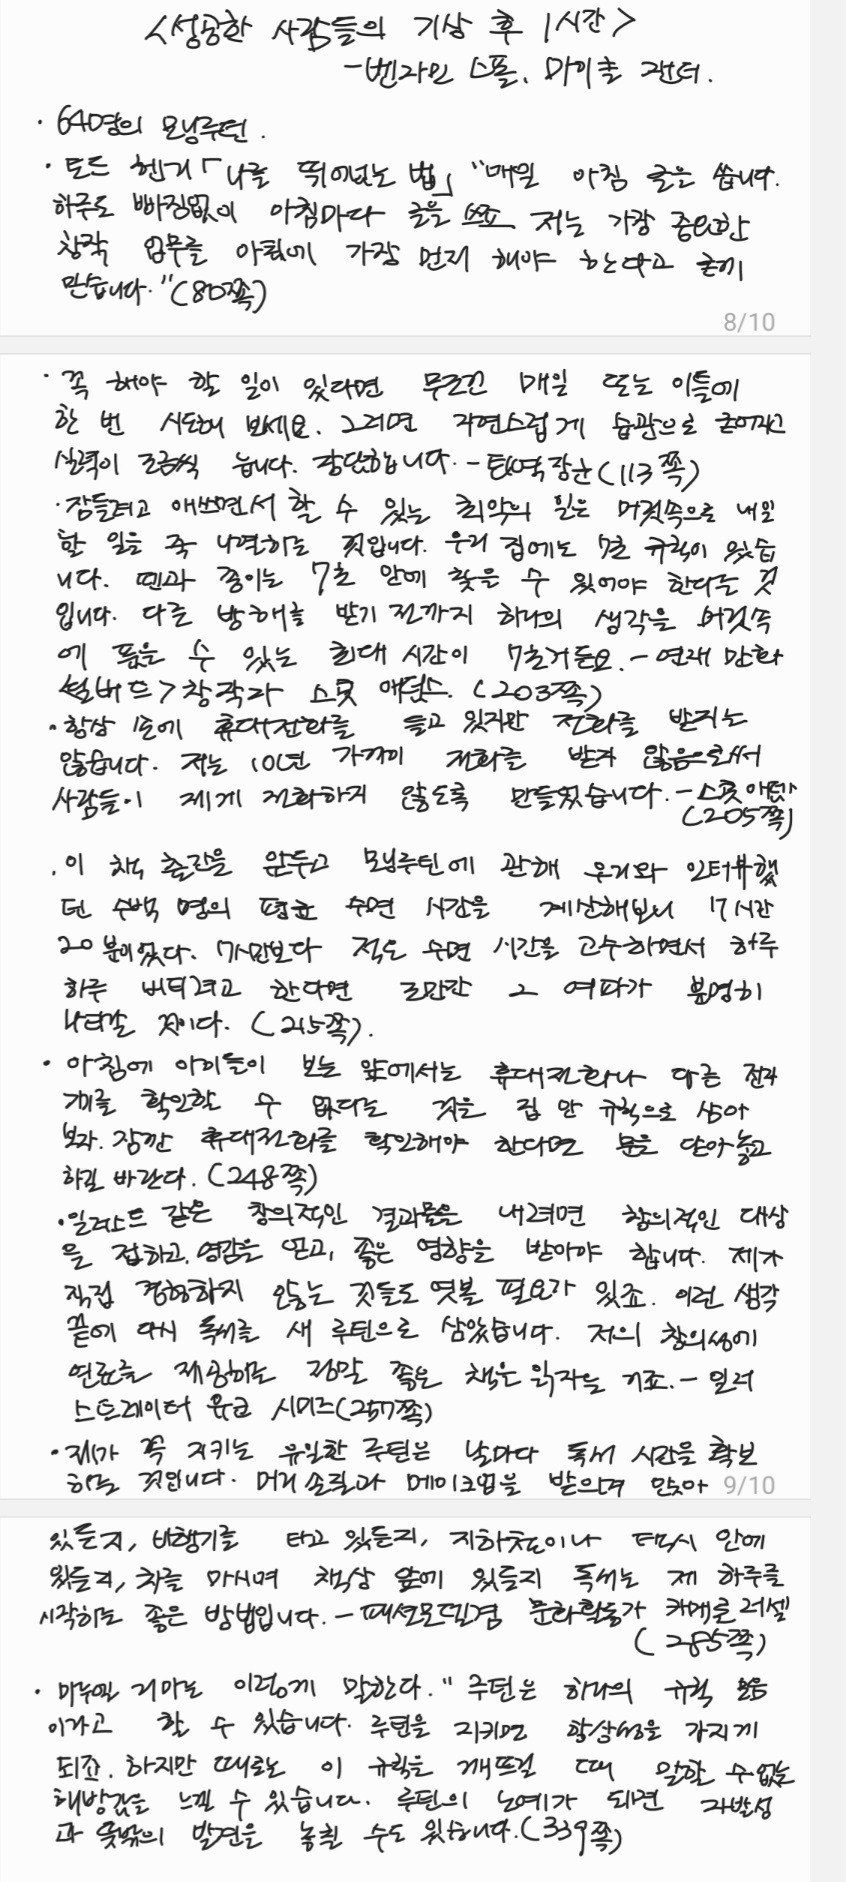 <성공한 사람들의 기상 후 1시간>
-벤자민 스폴, 마이클 잰더.
· 64명의 모닝루틴.
· 토드 헨리「나를 뛰어넘는 법」 "매일 아침 글을 씁니다.
하루도 빠짐없이 아침마다 글을 쓰죠 저는 가장 중요한
창작 업무를 아침에 가장 먼저 해야 한다고 굳게
믿습니다."(80쪽)
8/10
· 꼭 해야 할 일이 있다면 무조건 매일 또는 이틀에
한 번 시도해 보세요. 그러면 자연스럽게 습관으로 굳어지고
실력이 조금씩 늡니다. 장담합니다.-탠 장군(113쪽)
· 잠들려고 애쓰면서 할 수 있는 최악의 일은 머릿속으로 내일
할 일을 죽 나열하는 것입니다. 우리 집에는 7초 규칙이 있습
니다. 펜과 종이는 7초 안에 찾을 수 있어야 한다는 것
입니다. 다른 방해를 받기 전까지 하나의 생각을 머릿속
에 품을 수 있는 최대 시간이 7초거든요.-연재 만화
딜버트> 창작자 스콧 애덤스. (203쪽)
· 항상 손에 휴대전화를 들고 있지만 전화를 받지는
않습니다. 저는 10년 가까이 전화를 받지 않음으로써
사람들이 제게 전화하지 않도록 만들었습니다.-스콧 아담스
(205쪽)
· 이 책 출간을 앞두고 모닝루틴에 관해 우리와 인터뷰했
던 수백 명의 평균 수면 시간을 계산해보니 7시간
20분이었다. 7시간보다 적은 수면 시간을 고수하면서 하루
하루 버티려고 한다면 조만간 그 여파가 분명히
나타날 것이다. (215쪽).
· 아침에 아이들이 보는 앞에서는 휴대전화나 다른 전자
기기를 확인할 수 없다는 것을 집 안 규칙으로 삼아
보자. 잠깐 휴대전화를 확인해야 한다면 문을 닫아놓고
하길 바란다. (248쪽)
· 일러스트 같은 창의적인 결과물을 내려면 창의적인 대상
을 접하고, 영감을 얻고, 좋은 영향을 받아야 합니다. 제가
직접 경험하지 않는 것들도 엿볼 필요가 있죠. 이런 생각
끝에 다시 독서를 새 루틴으로 삼았습니다. 저의 창의성에
연료를 제공하는 정말 좋은 책은 읽자는 거죠.- 일러
스트레이터 유코 시미즈(257쪽)
· 제가 꼭 지키는 유일한 루틴은 날마다 독서 시간을 확보
하는 것입니다. 머리 손질과 메이크업을 받으며 앉아 9/10
있든지, 비행기를 타고 있든지, 지하철이나 택시 안에
있든지, 차를 마시며 책상 앞에 있든지 독서는 제 하루를
시작하는 좋은 방법입니다.-패션모델겸 문화활동가 카메론 러셀
(285쪽)
· 마누엘 리마는 이렇게 말한다." 루틴은 하나의 규칙 묶음
이라고 할 수 있습니다. 루틴을 지키면 항상성을 가지게
되죠. 하지만 때로는 이 규칙을 깨뜨릴 때 말할 수 없는
해방감을 느낄 수 있습니다. 루틴의 노예가 되면 자발성
과 뜻밖의 발견을 놓칠 수도 있습니다.(339쪽)